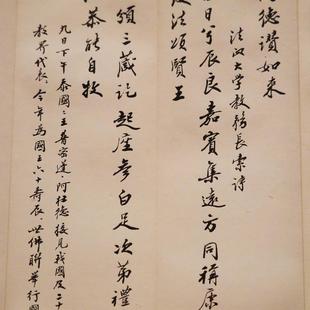 德讚如来
法政大学教務長索詩
日兮辰良嘉賓集遠方同稱
法頌賢王
頒三藏訖起座参白足次第禮
恭能自牧
九日下午泰國々王普密蓬·阿杜德接見我國及二十
教界代表,今年為國王六十壽辰,世佛聯舉行國